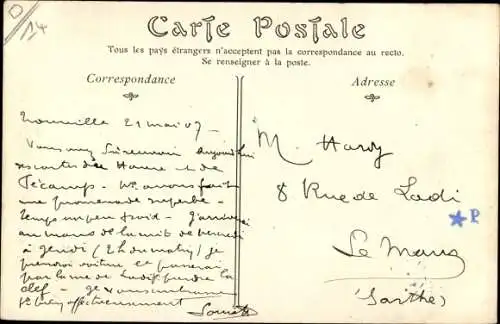 14
Carte Postale
Tous les pays étrangers n'acceptent pas la correspondance au recto.
Se renseigner à la poste.
Correspondance
Adresse
21 mai 07 -
aujourd'hui
Havre de
Fécamp - Ns avons fait
une promenade superbe -
temps un peu froid - J'arriverai
au mans de la nuit de mercredi
à jeudi (2 h du matin) je
prendrai voiture et passerai
par la rue de prendre la
clef - Je vous
bien affectueusement
M. Hardy
8 Rue de Lodi
Le Mans
(Sarthe)
P.